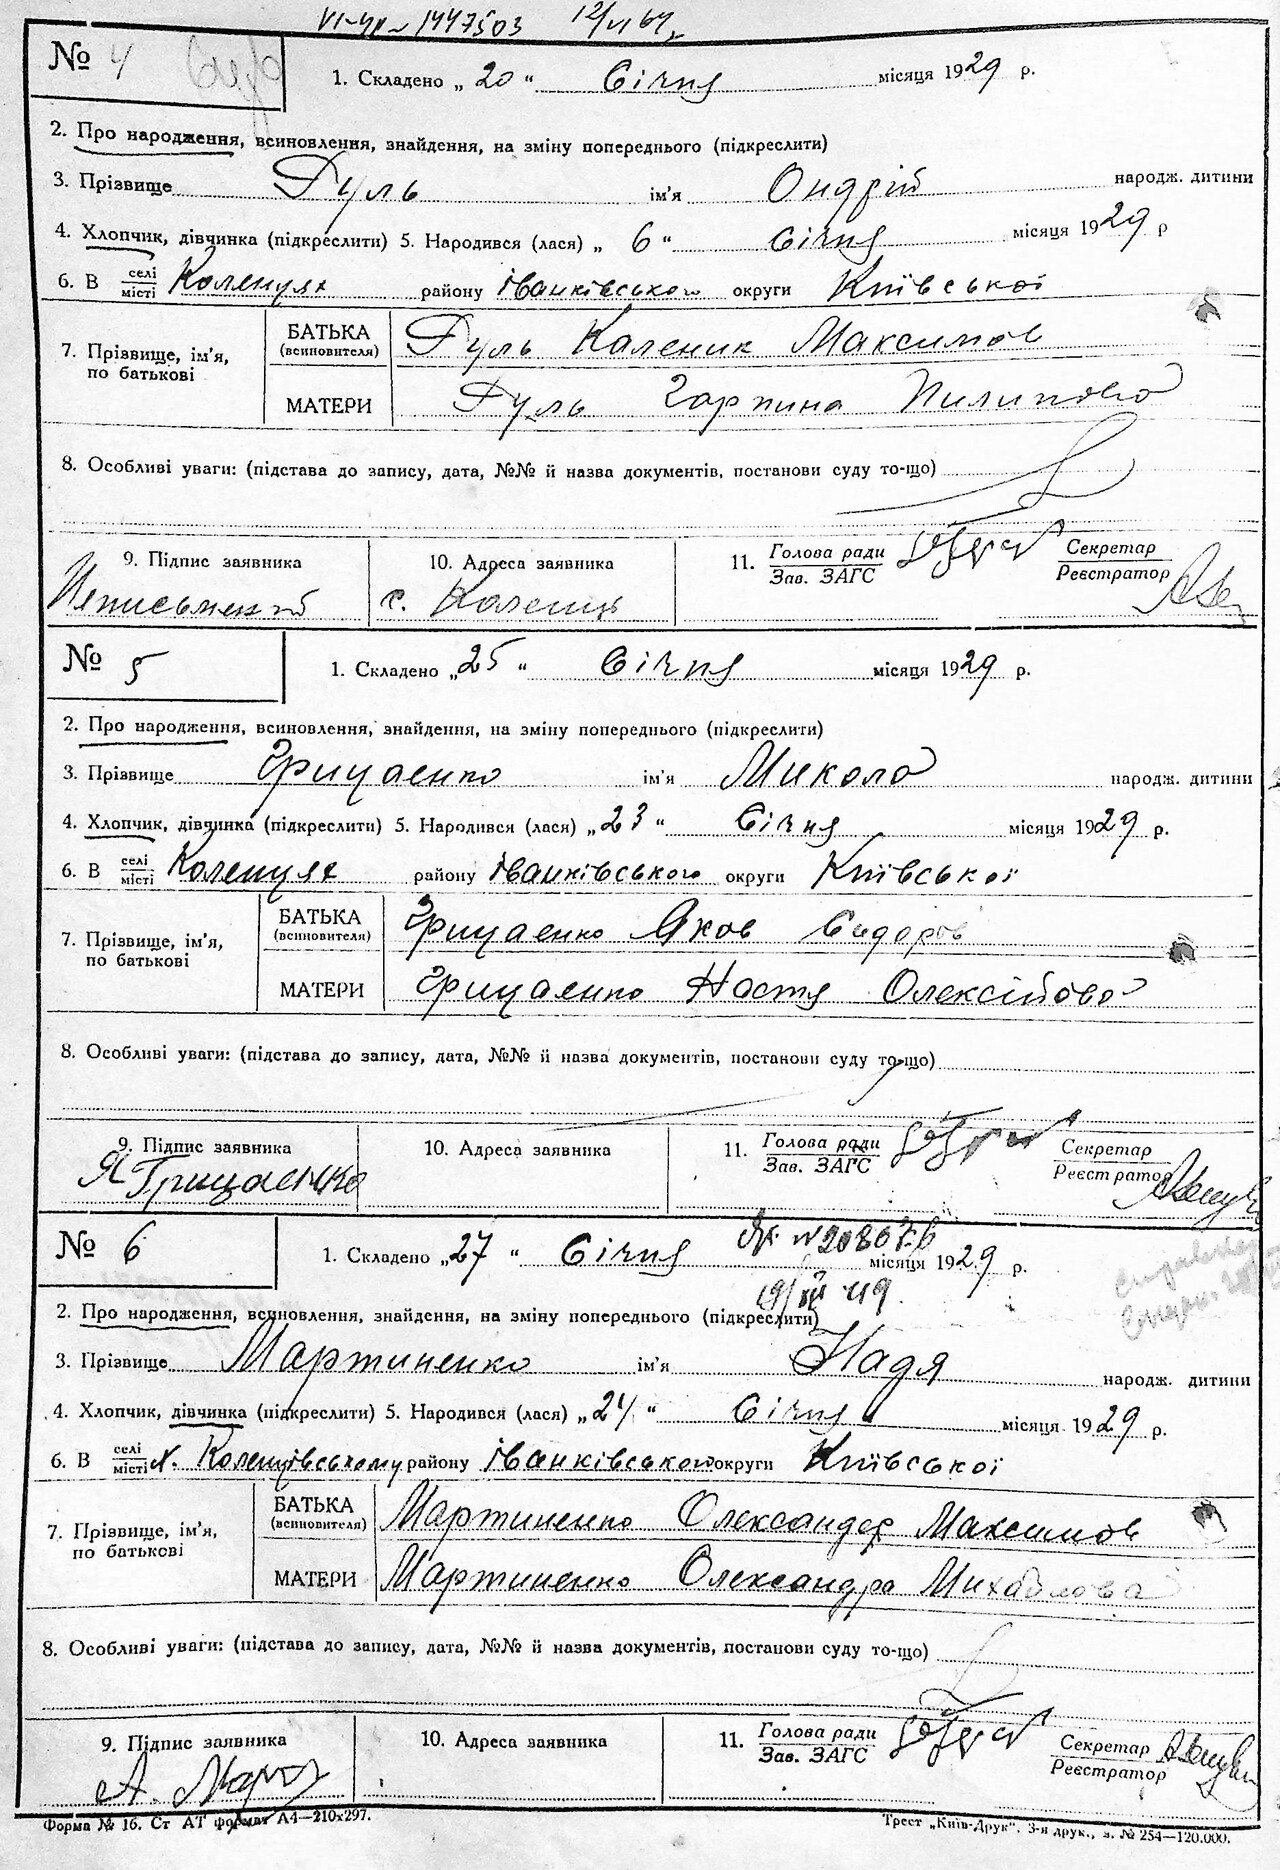 VI-ЧР № 1447503 12/VI 64
№ 4
1. Складено „ 20 “ Січня місяця 1929 р.
2. Про народження, всиновлення, знайдення, на зміну попереднього (підкреслити)
3. Прізвище Гуль ім'я Ондрій народж. дитини
4. Хлопчик, дівчинка (підкреслити) 5. Народився (лася) „ 6 “ Січня місяця 1929 р
6. В селі місті Коленцях району Іванківського округи Київської
7. Прізвище, ім'я, по батькові
БАТЬКА (всиновителя) Гуль Каленик Максимов
МАТЕРИ Гуль Гарпина Пилипова
8. Особливі уваги: (підстава до запису, дата, №№ й назва документів, постанови суду то-що)
9. Підпис заявника 10. Адреса заявника 11. Голова ради Зав. ЗАГС Секретар Реєстратор
Неписьменний с. Коленці
№ 5
1. Складено „ 25 “ Січня місяця 1929 р.
2. Про народження, всиновлення, знайдення, на зміну попереднього (підкреслити)
3. Прізвище Грицаенко ім'я Микола народж. дитини
4. Хлопчик, дівчинка (підкреслити) 5. Народився (лася) „ 23 “ Січня місяця 1929 р.
6. В селі місті Коленцях району Іванківського округи Київської
7. Прізвище, ім'я, по батькові
БАТЬКА (всиновителя) Грицаенко Яков Сидоров
МАТЕРИ Грицаенко Настя Олексійова
8. Особливі уваги: (підстава до запису, дата, №№ й назва документів, постанови суду то-що)
9. Підпис заявника 10. Адреса заявника 11. Голова ради Зав. ЗАГС Секретар Реєстратор
Я Грицаенко
№ 6
1. Складено „ 27 “ Січня місяця 1929 р.
2. Про народження, всиновлення, знайдення, на зміну попереднього (підкреслити)
3. Прізвище Мартиненко ім'я Надя народж. дитини
4. Хлопчик, дівчинка (підкреслити) 5. Народився (лася) „ 24 “ Січня місяця 1929 р.
6. В селі місті х. Коленцівському району Іванківського округи Київської
7. Прізвище, ім'я, по батькові
БАТЬКА (всиновителя) Мартиненко Олександер Максимов
МАТЕРИ Мартиненко Олександра Михайлова
8. Особливі уваги: (підстава до запису, дата, №№ й назва документів, постанови суду то-що)
9. Підпис заявника 10. Адреса заявника 11. Голова ради Зав. ЗАГС Секретар Реєстратор
Форма № 16. Ст АТ формат А4—210x297. Трест „Київ-Друк“. 3-я друк., з. № 254—120.000.